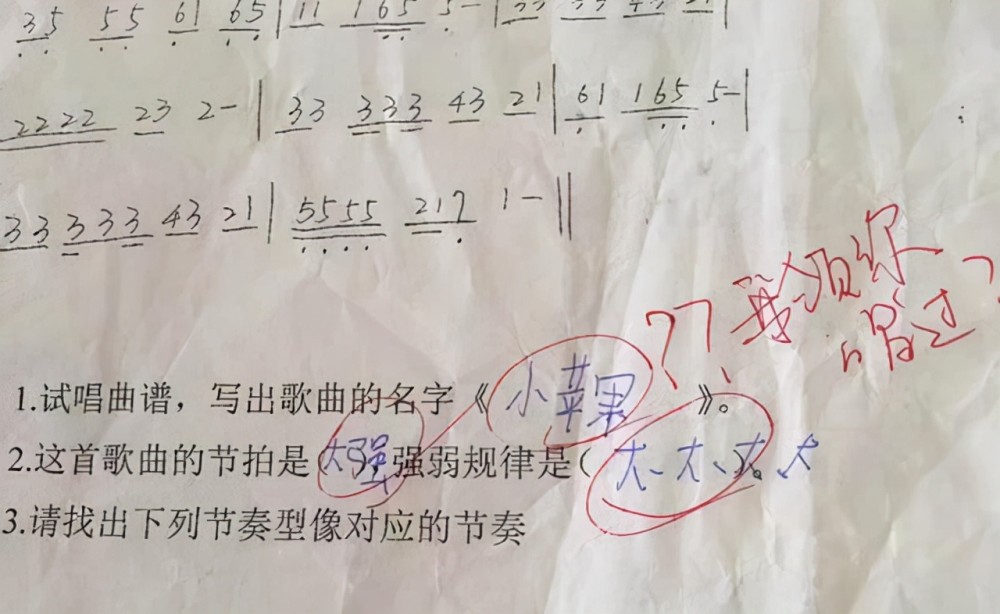 35 55 61 65 | 11 165 5- | 33 33 43 21 |
2222 23 2- | 33 333 43 21 | 61 165 5- |
33 333 43 21 | 5555 217 1- ||
?? 领你
唱过?
1.试唱曲谱，写出歌曲的名字《小苹果》。
2.这首歌曲的节拍是(大强),强弱规律是( 大、大、大。大
3.请找出下列节奏型像对应的节奏